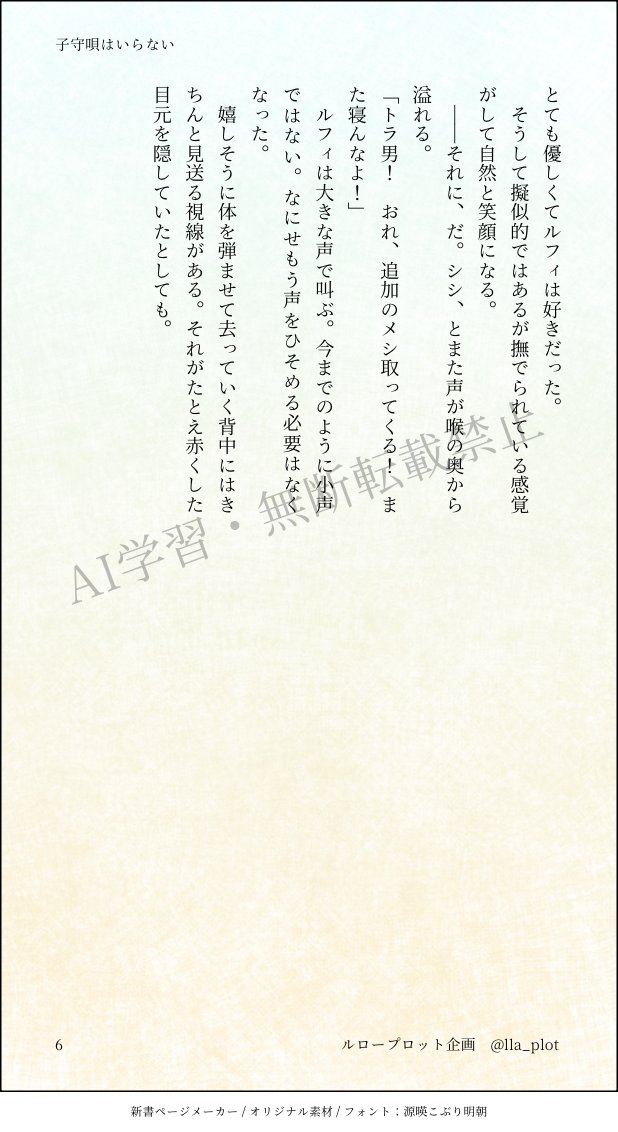 子守唄はいらない
とても優しくてルフィは好きだった。
　そうして擬似的ではあるが撫でられている感覚
がして自然と笑顔になる。
　――それに、だ。シシ、とまた声が喉の奥から
溢れる。
「トラ男！　おれ、追加のメシ取ってくる！　ま
た寝んなよ！」
　ルフィは大きな声で叫ぶ。今までのように小声
ではない。なにせもう声をひそめる必要はなく
なった。
　嬉しそうに体を弾ませて去っていく背中にはき
ちんと見送る視線がある。それがたとえ赤くした
目元を隠していたとしても。
AI学習・無断転載禁止
6
ルロープロット企画　@lla_plot
新書ページメーカー / オリジナル素材 / フォント：源暎こぶり明朝